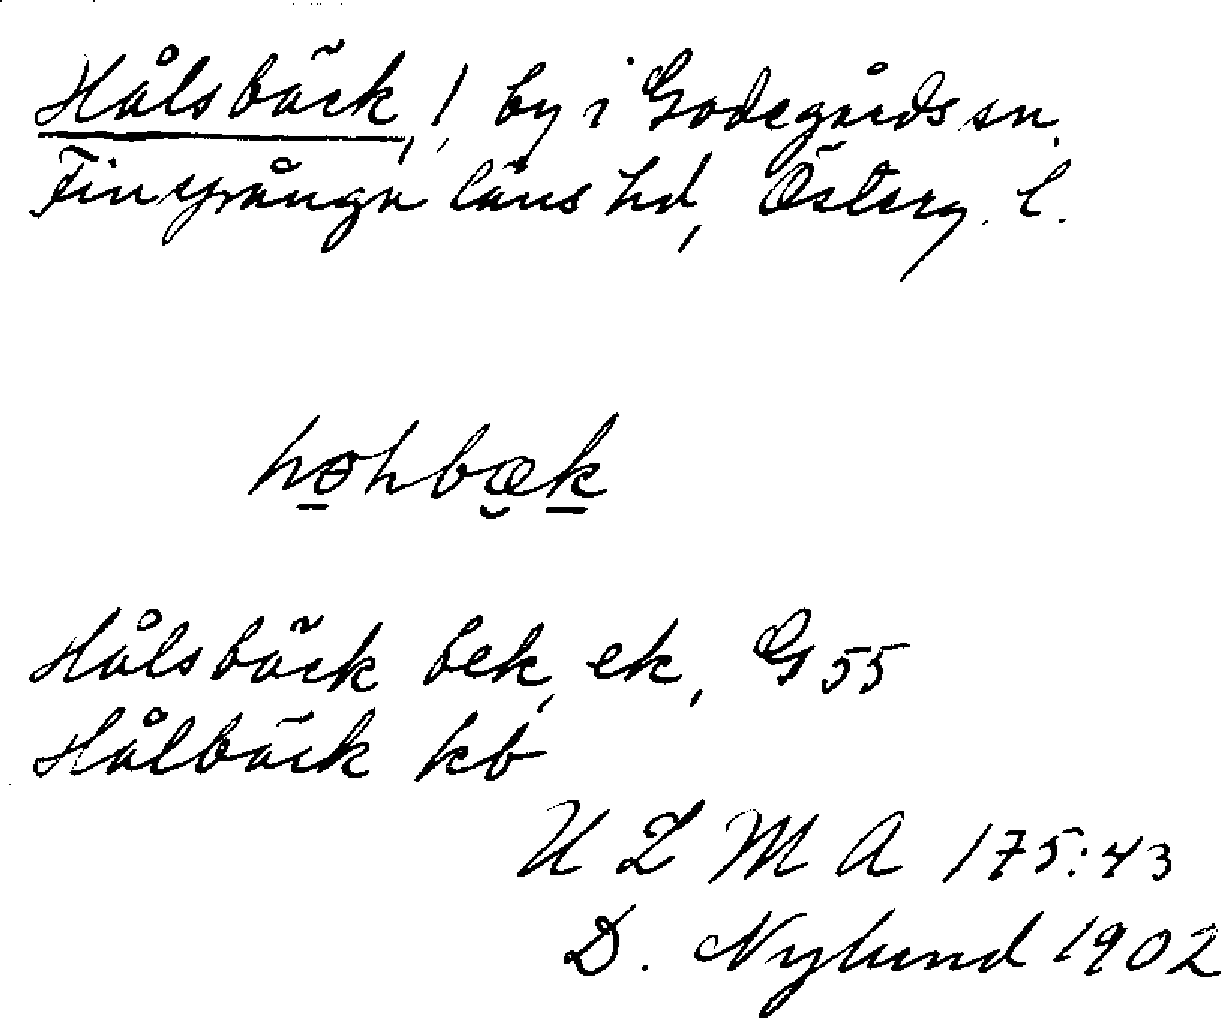 Hålsbäck, !, by i Godegårds sn.
Finspånga läns hd, Österg. l.
Hålsbäck bek, ek, G 55
Hålbäck kb
U L M A 175:43
D. Nylund 1902